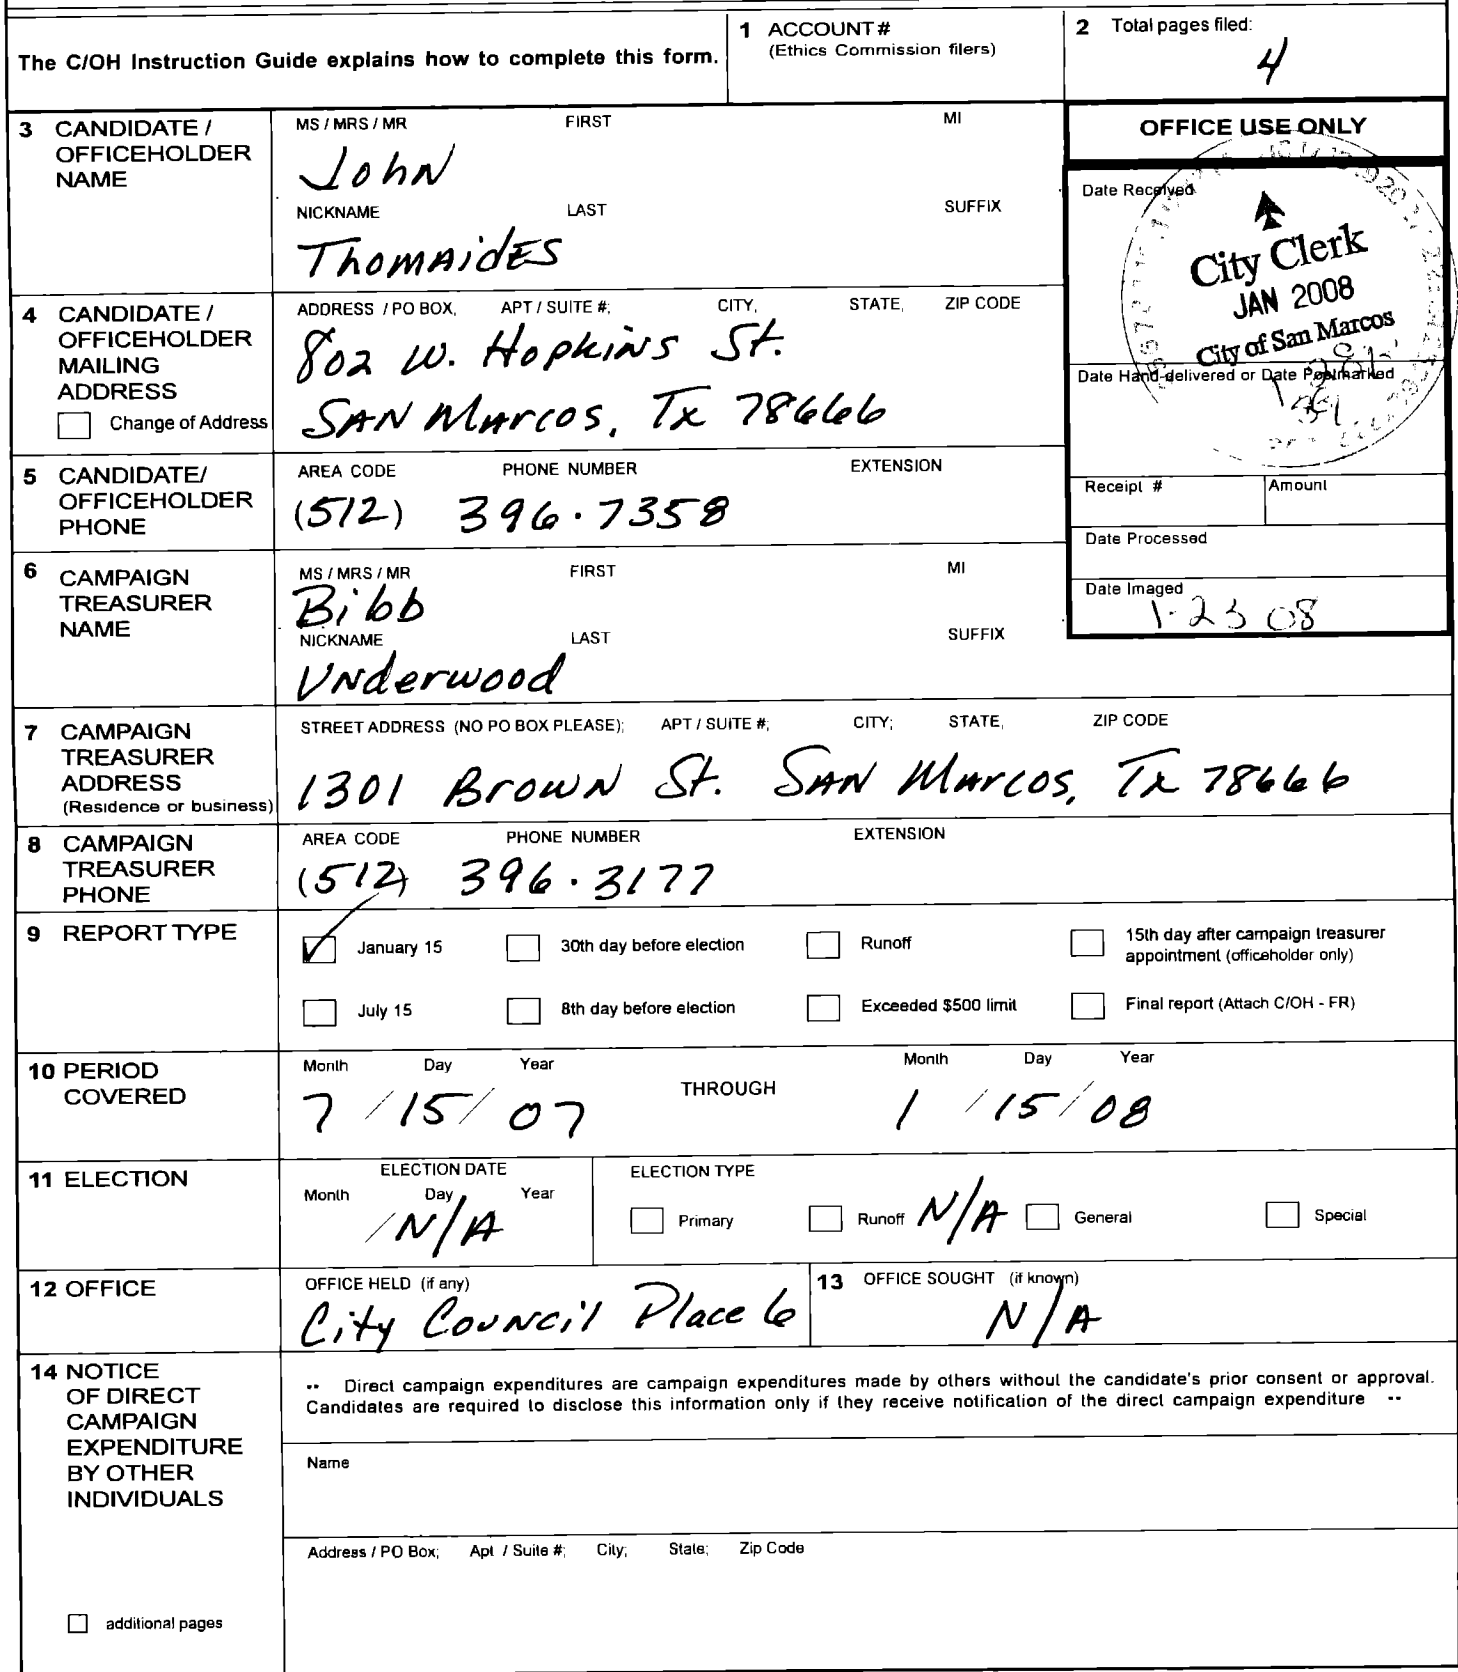 The C/OH Instruction Guide explains how to complete this form.
1 ACCOUNT #
(Ethics Commission filers)
2 Total pages filed:
4
3 CANDIDATE /
OFFICEHOLDER
NAME
MS / MRS / MR FIRST MI
John
NICKNAME LAST SUFFIX
Thomaides
OFFICE USE ONLY
Date Received
City Clerk
JAN 2008
City of San Marcos
Date Hand-delivered or Date Postmarked
Receipt # Amount
Date Processed
Date Imaged
1-23 08
4 CANDIDATE /
OFFICEHOLDER
MAILING
ADDRESS
Change of Address
ADDRESS / PO BOX, APT / SUITE #; CITY, STATE, ZIP CODE
802 W. Hopkins St.
San Marcos, Tx 78666
5 CANDIDATE/
OFFICEHOLDER
PHONE
AREA CODE PHONE NUMBER EXTENSION
(512) 396.7358
6 CAMPAIGN
TREASURER
NAME
MS / MRS / MR FIRST MI
Bibb
NICKNAME LAST SUFFIX
Underwood
7 CAMPAIGN
TREASURER
ADDRESS
(Residence or business)
STREET ADDRESS (NO PO BOX PLEASE); APT / SUITE #; CITY; STATE, ZIP CODE
1301 Brown St. San Marcos, Tx 78666
8 CAMPAIGN
TREASURER
PHONE
AREA CODE PHONE NUMBER EXTENSION
(512) 396.3177
9 REPORT TYPE
January 15 30th day before election Runoff 15th day after campaign treasurer
appointment (officeholder only)
July 15 8th day before election Exceeded $500 limit Final report (Attach C/OH - FR)
10 PERIOD
COVERED
Month Day Year THROUGH Month Day Year
7 / 15 / 07 1 / 15 / 08
11 ELECTION
ELECTION DATE
Month Day Year
/ N/A
ELECTION TYPE
Primary Runoff N/A General Special
12 OFFICE
OFFICE HELD (if any)
City Council Place 6
13 OFFICE SOUGHT (if known)
N/A
14 NOTICE
OF DIRECT
CAMPAIGN
EXPENDITURE
BY OTHER
INDIVIDUALS
-- Direct campaign expenditures are campaign expenditures made by others without the candidate's prior consent or approval.
Candidates are required to disclose this information only if they receive notification of the direct campaign expenditure --
Name
Address / PO Box; Apt / Suite #; City; State; Zip Code
additional pages